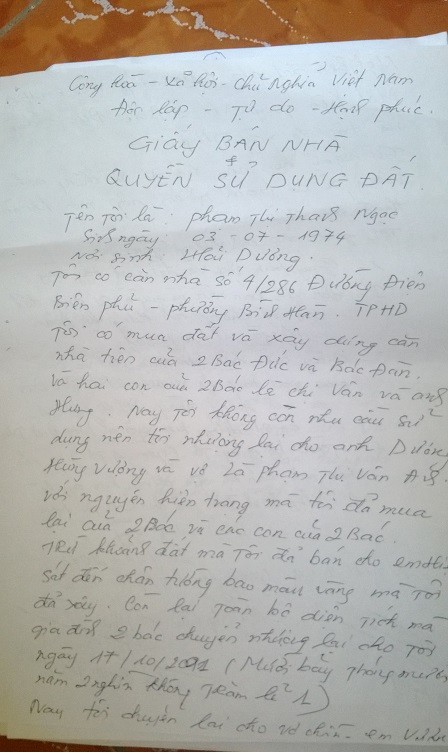 Cộng hoà - xã hội - chủ nghĩa Việt Nam
Độc lập - Tự do - Hạnh phúc.
GIẤY BÁN NHÀ
&
QUYỀN SỬ DỤNG ĐẤT.
Tên tôi là: Phạm Thị Thanh Ngọc
Sinh ngày 03-07-1974
Nơi sinh: Hải Dương.
Tôi có căn nhà số 4/286 Đường Điện
Biên phủ - phường Bình Hàn. TPHD
Tôi có mua đất và xây dựng căn
nhà trên của 2 Bác Đức và Bác Đan.
Và hai con của 2 Bác là chị Vân và anh
Hưng. Nay tôi không còn nhu cầu sử
dụng nên tôi nhượng lại cho anh Dương
Hùng Vương và vợ là Phạm Thị Vân Anh.
với nguyên hiện trạng mà tôi đã mua
lại của 2 Bác và các con của 2 Bác.
Trừ khoảnh đất mà tôi đã bán cho
sát đến chân tường bao màu vàng mà tôi
đã xây. Còn lại toàn bộ diện tích mà
gia đình 2 bác chuyển nhượng lại cho tôi
ngày 17/10/ (Mười bảy tháng mười
năm 2 nghìn không trăm lẻ 1)
Nay tôi chuyển lại cho vợ chồng em